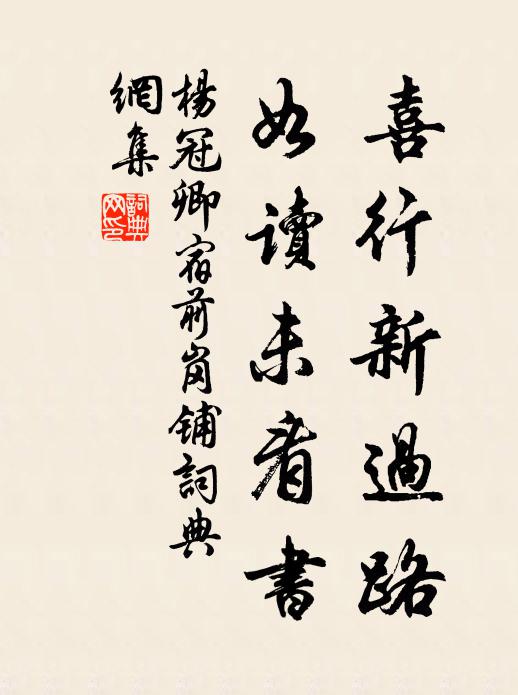 喜行新過路
如讀未看書
楊冠卿宿前崗鋪詞典
網集
詞典網印